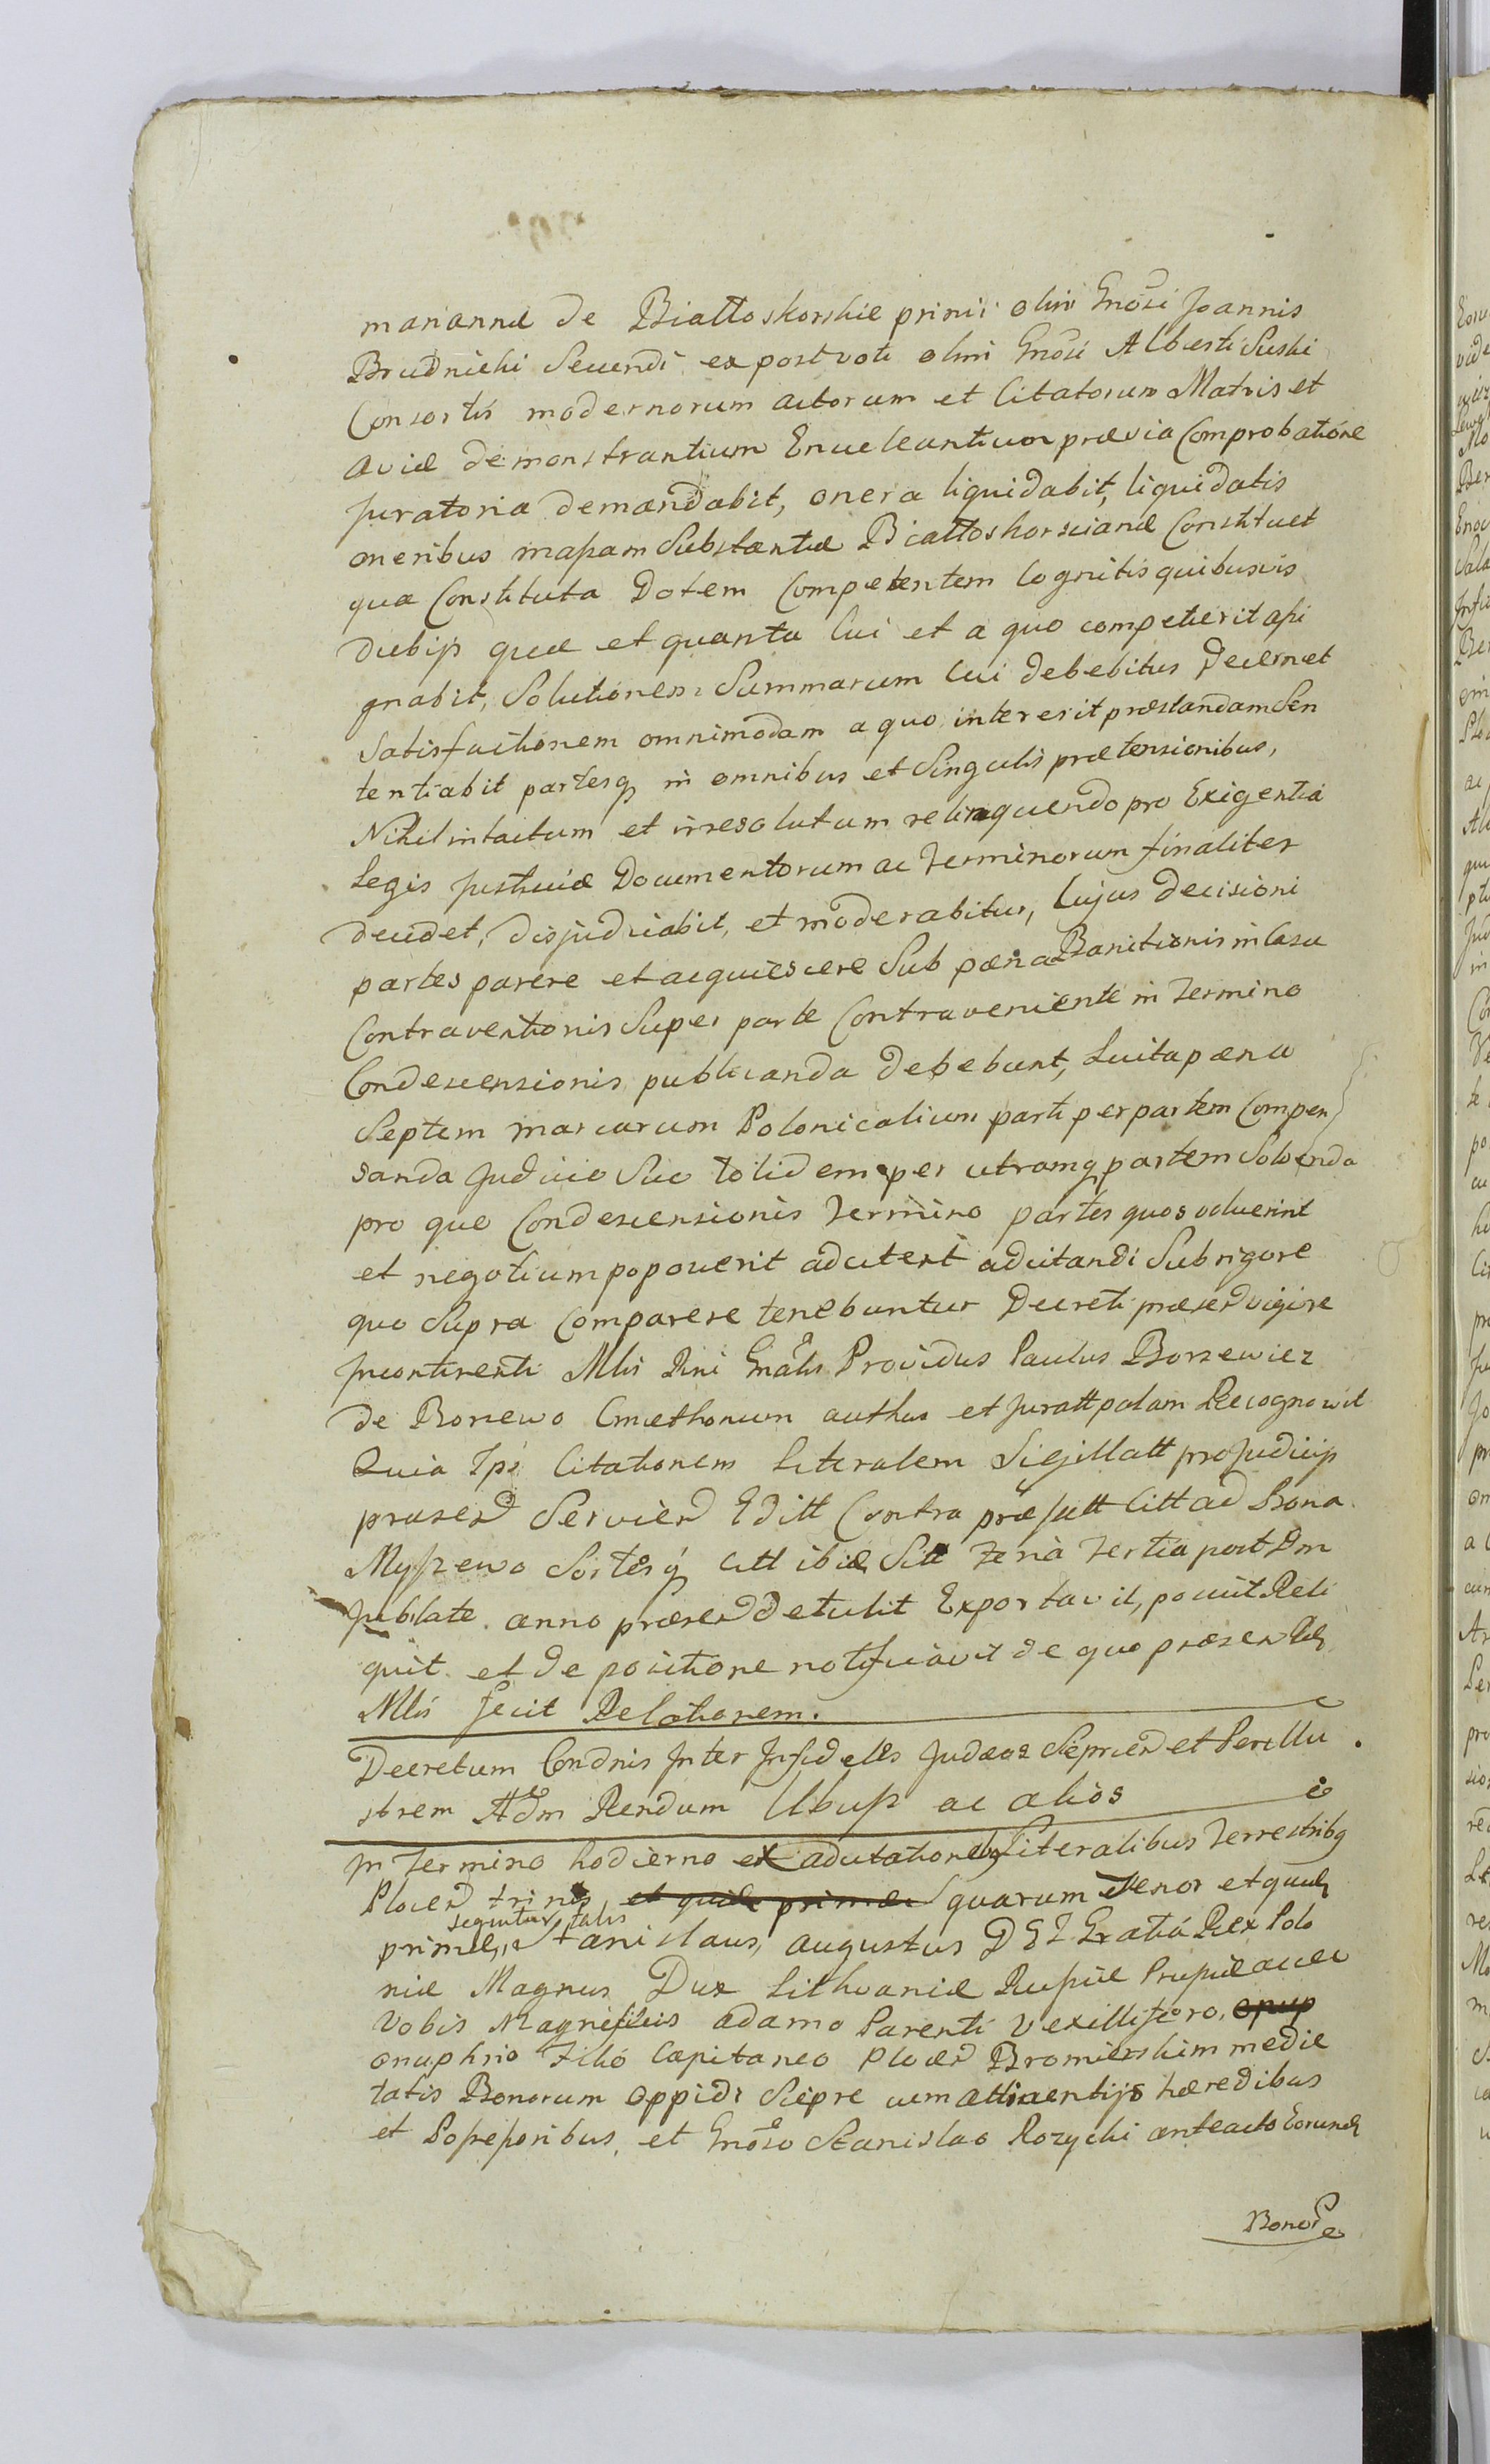 mariannæ de Białłoskorskie primi olim Gnosi Joannis
Brudnicki Secundi ex post voti olim Gnosi Alberti Suski
Consortis modernorum actorum et Citatorum Matris et
aviæ demonstrantium Enucleantium prævia Comprobatióne
juratoria demandabit, onera liquidabit, liquidatis
oneribus maßam Substantiæ Białłoskorscianæ Constituet
qua Constituta Dotem Competentem Cognitis quibusvis
dubijs quæ et quanta Cui et a quo competierit aßi
gnabit, Solutionem Summarum Cui debebitur Decernet
Satisfactionem omnimodam a quo intererit præstandam Sen
tentiabit partesq in omnibus et Singulis prætensionibus,
Nihil intactum et irresolutum relinquendo pro Exigentia
Legis Justitiæ Documentorum ac Terminorum finaliter
decidet, disjudicabit, et moderabitur, Cujus decisioni
partes parere et acquiescere Sub pæna Banitionis in Casu
Contraventionis Super parte Contraveniente in Termino
Condescensionis publicanda debebunt, Luita pæna
Septem marcarum Polonicalium parti per partem Compen
sanda Judicio Suo totidem per utramq partem Solvenda
pro quo Condescensionis Termino partes quos voluerint
et negotium poposcerit adcitent adcitandi Sub rigore
quo Supra Comparere tenebuntur Decreti præsend vigore
Incontinenti Mlis Rni Gnalis Providus Paulus Borzewicz
de Boriewo Cmethonum authus et Juratt palam Recognovit
Quia Ipse Citationem Literalem Sigillatt pro Judicijs
præsend Serviend Editt Contra præfatt Citt ad Bona
Myszewo Sortesq Citt ibid Sitt Feria Tertia post Dm
Jubilate anno præsend detulit Exportavit, posuit Reli
quit et de positione notificavit de quo præsen
Mlis fecit Relationem.
Decretum Condnis Inter Infideles Judæos Sieprcen et Perillu
strem Adm Rendum Ubysz ac alios
In Termino hodierno ex adcitationebq Literalibus Terrestribq
Plocen trinis, et quidem primæ quarum Tenor et quid
sequitur talis
primæ, Stanislaus, augustus D G Gratiá Rex Polo
niæ Magnus Dux Lithvaniæ Rußiæ Prußiæ
Vobis Magnificis adamo Parenti Vexillifero,
onuphrio Filió Capitaneo Plocen Bromierskim medie
tatis Bonorum Oppidi Sieprc cum attinentijs hæredibus
et Poßeßoribus, et Gnoso Stanislao Rozycki anteacto Eorund
Bonor